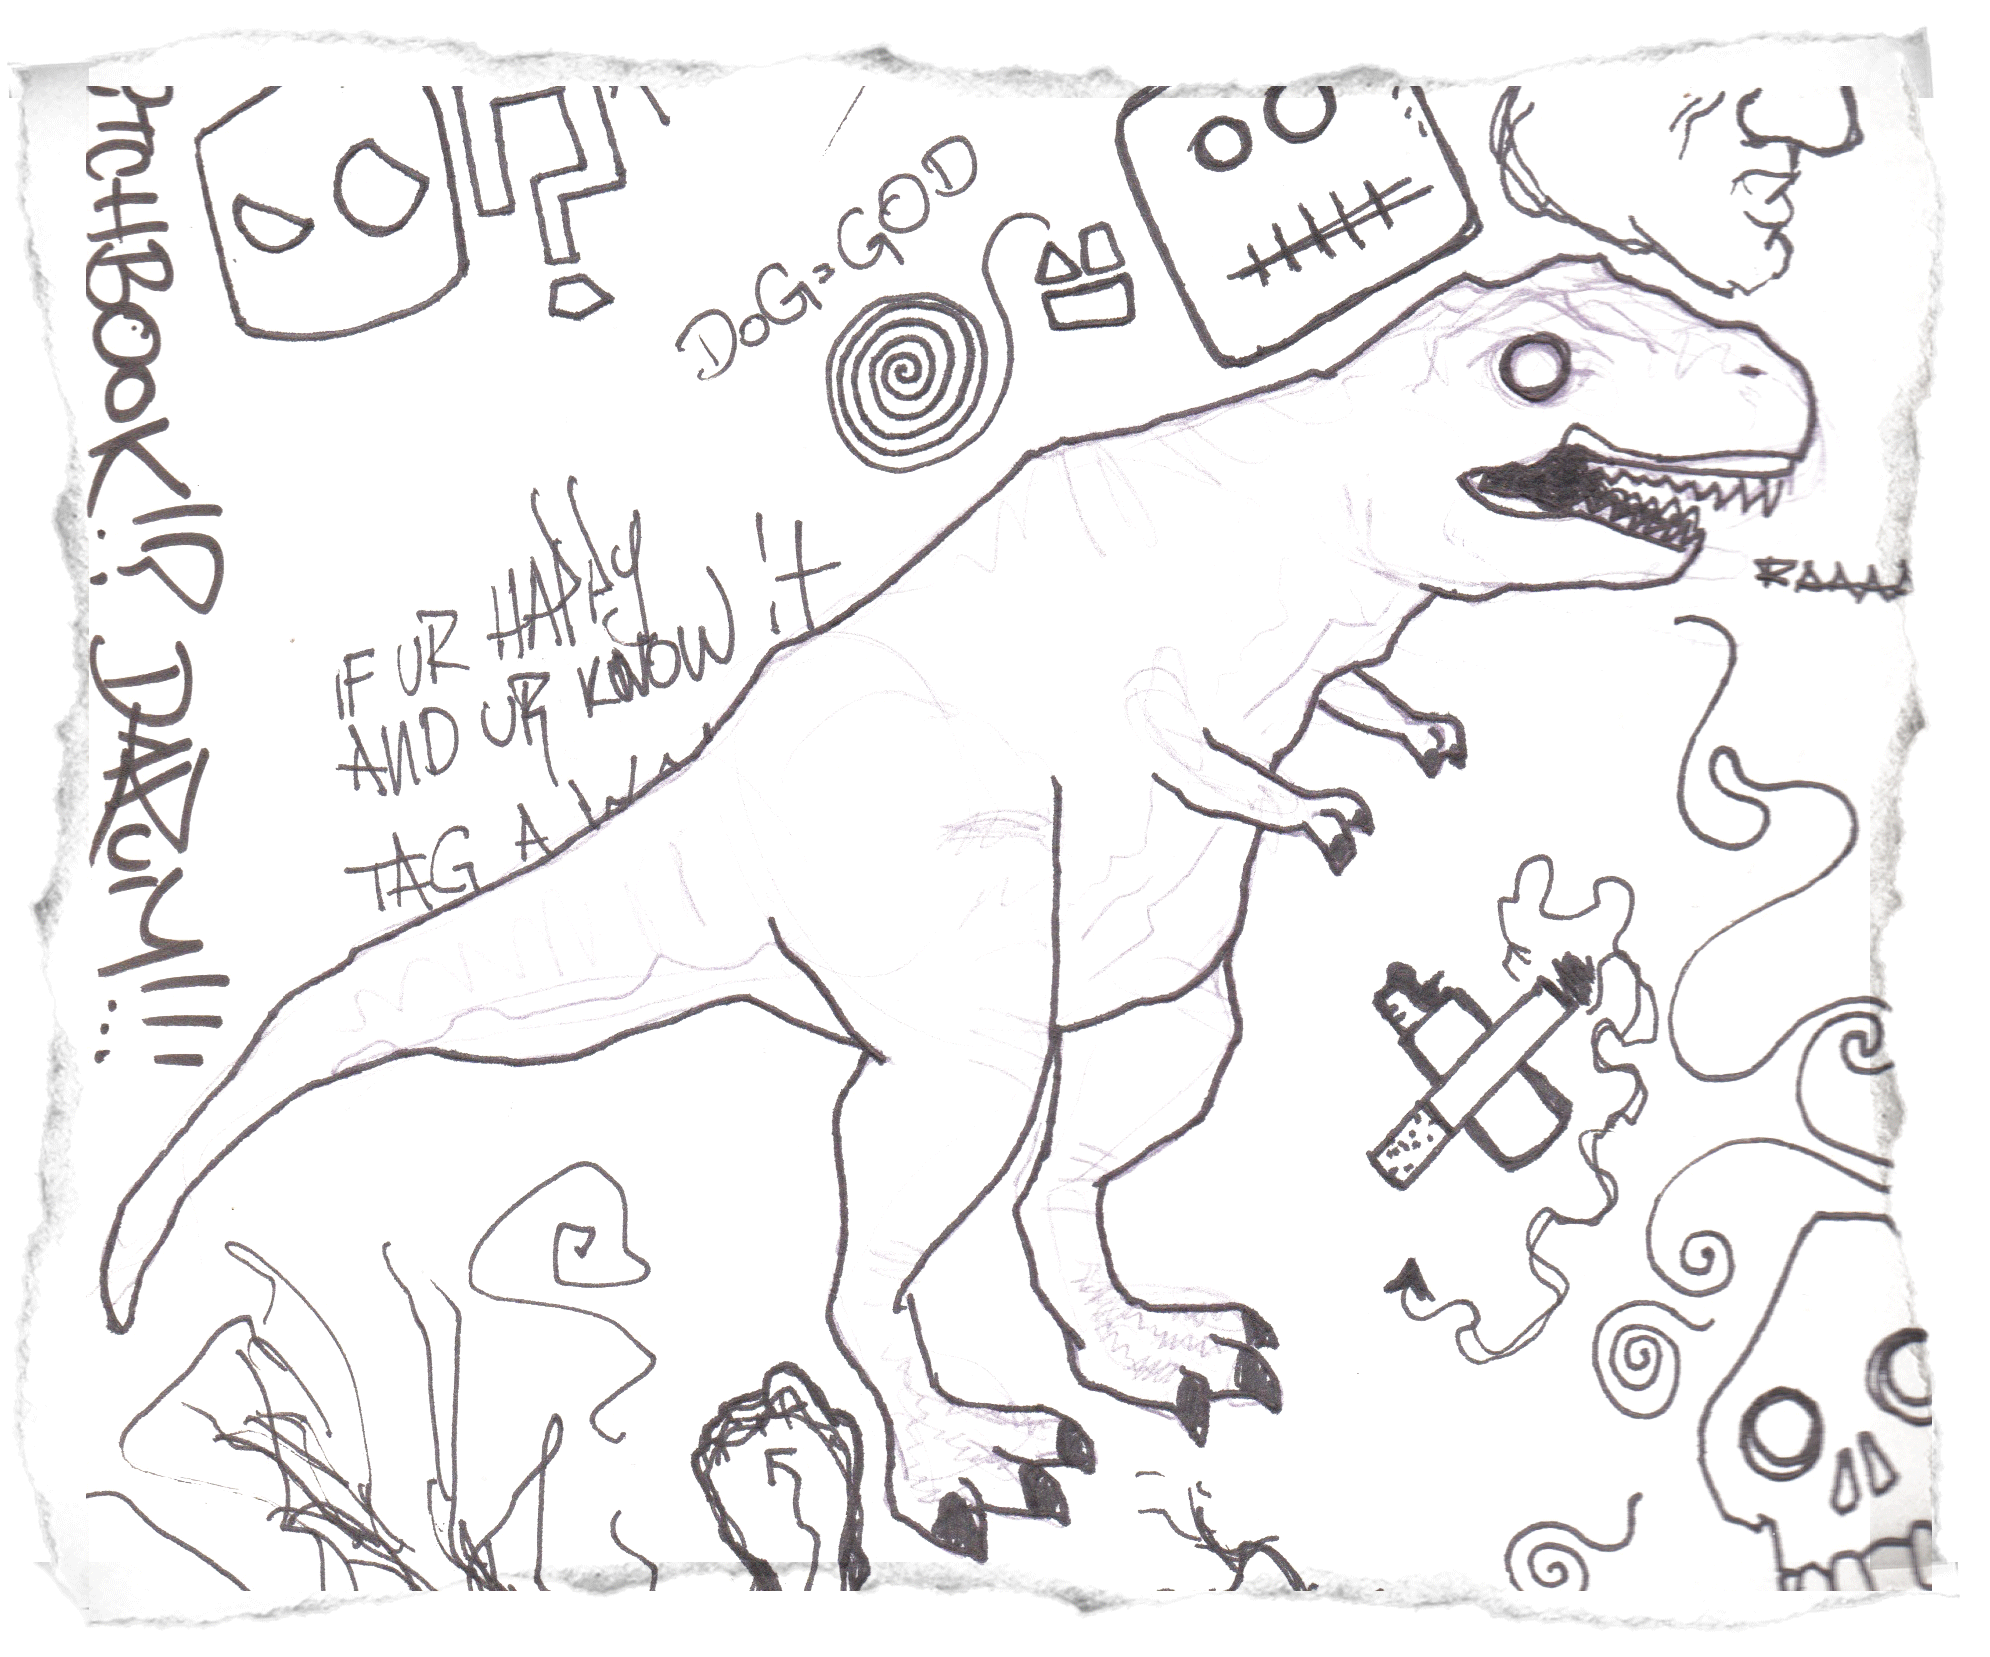 TCHBOOK!? DARuM!!!
DoG=GOD
IF UR HAPPY
AND UR KNOW it
TAG A
RAAAA